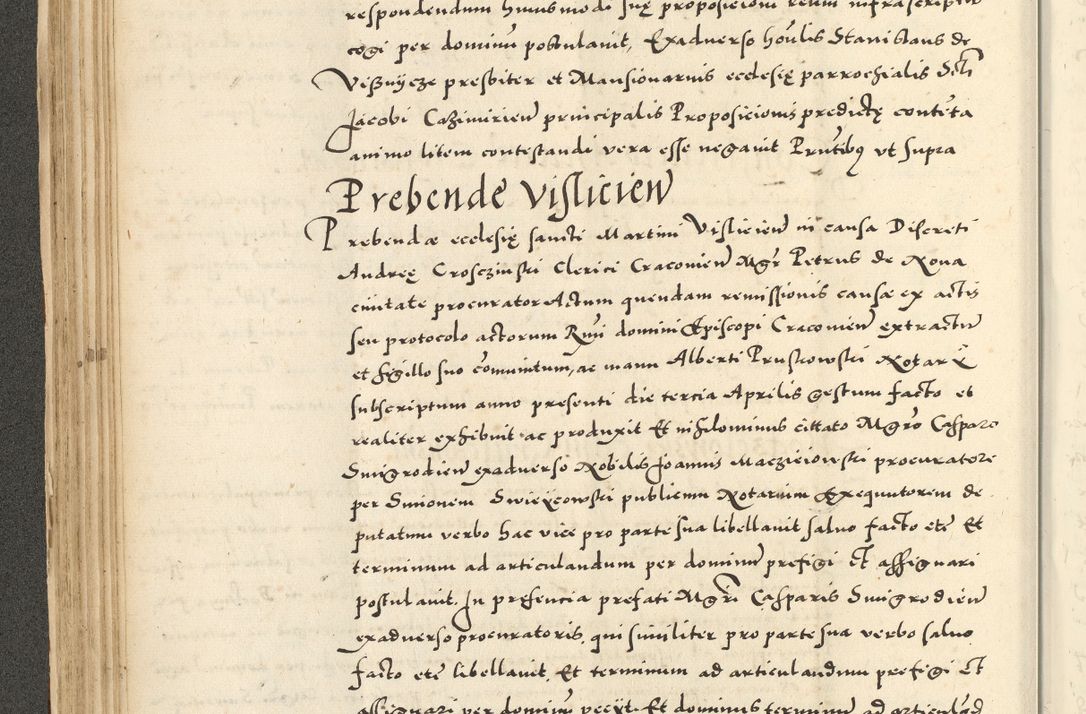 respondendum huiusmodi suę proposicioni reum infrascriptum
cogi per dominũ postulavit, Exadverso hoñlis Stanislaus de
Visnycze presbiter et Mansionarius ecclesię parrochialis Scti
Jacobi Cazimirieñ principalis Proposicionis predictę contẽta
animo litem contestandi vera esse negavit Pñtibus ut supra
Prebende Vislicieñ
Prebendæ ecclesię sancti Martini Visliciẽn in causa Discreti
Andreę Crosczinski Clerici Cracovieñ Mgr Petrus de Nova
civitate procurator Actum quendam remissionis causæ ex actis
seu protocolo actorum Rmi domini Episcopi Cracovieñ extractũ
et sigillo suo cõmunitum, ac manu Alberti Pruskowski Notarii
subscriptum anno presenti die tercia Aprilis gestum facto et
realiter exhibuit ac produxit Et nihilominus cittato Mgro Casparo
Smigrodieñ exadverso Nobilis Joannis Maczieiowski procuratore
per Simonem Swiexcowski publicum Notarium Exequutorem de
putatum verbo hac vice pro parte sua libellavit salvo facto etc̃ Et
terminum ad articulandum per dominũ prefigi Et assignari
postulavit. In presencia prefati Mgri Casparis Smigrodieñ
exadverso procuratoris, qui similiter pro parte sua verbo salvo
facto etc̃ libellavit, Et terminum ad articulandum prefigi Et
assignari per dominũ peciit. Et dominus terminũ ad articulãd